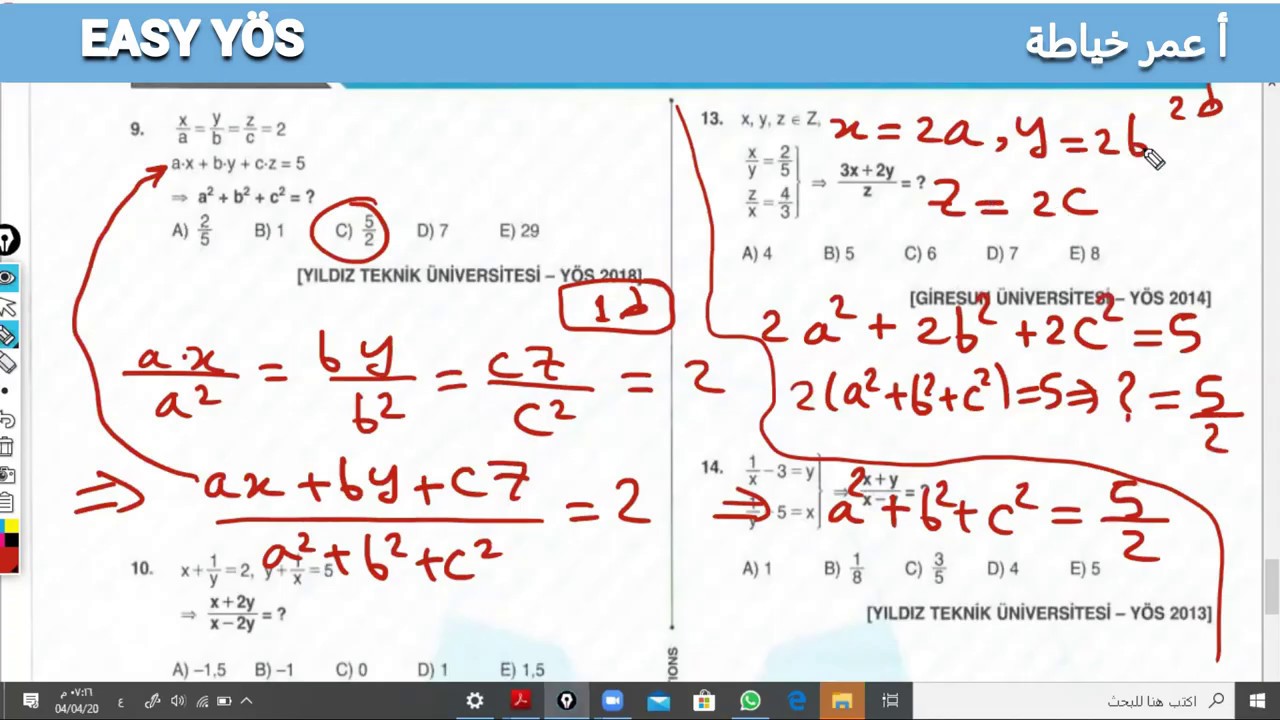 EASY YÖS
أ عمر خياطة
9. x/a = y/b = z/c = 2
a·x + b·y + c·z = 5
⇒ a² + b² + c² = ?
A) 2/5 B) 1 C) 5/2 D) 7 E) 29
[YILDIZ TEKNİK ÜNİVERSİTESİ – YÖS 2018]
1 b
a·x/a² = by/b² = cz/c² = 2
⇒ ax + by + cz / a² + b² + c² = 2 ⇒ a² + b² + c² = 5/2
10. x + 1/y = 2, y + 1/x = 5
⇒ x + 2y / x – 2y = ?
A) –1,5 B) –1 C) 0 D) 1 E) 1,5
2 b
13. x, y, z ∈ Z,
x = 2a, y = 2b
z = 2c
x/y = 2/5
z/x = 4/3
⇒ 3x + 2y / z = ?
A) 4 B) 5 C) 6 D) 7 E) 8
[GİRESUN ÜNİVERSİTESİ – YÖS 2014]
2a² + 2b² + 2c² = 5
2(a² + b² + c²) = 5 ⇒ ? = 5/2
14. 1/x – 3 = y
5 = x
x + y
A) 1 B) 1/8 C) 3/5 D) 4 E) 5
[YILDIZ TEKNİK ÜNİVERSİTESİ – YÖS 2013]
IONS
٠٧:١٦ م
04/04/20
ع
اكتب هنا للبحث